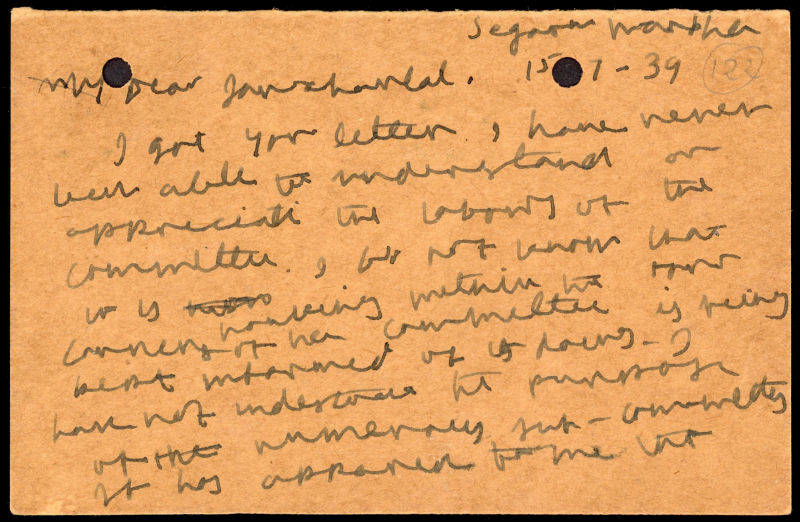 Segaon Wardha
15-7-39 122
My Dear Jawaharlal,
I got your letter. I have never
been able to understand or
appreciate the labours of the
committee. I do not know that
it is working within the four
corners of the committee is being
kept informed of its doings. I
have not understood the purpose
of the numerous sub-committees
It has appeared to me that